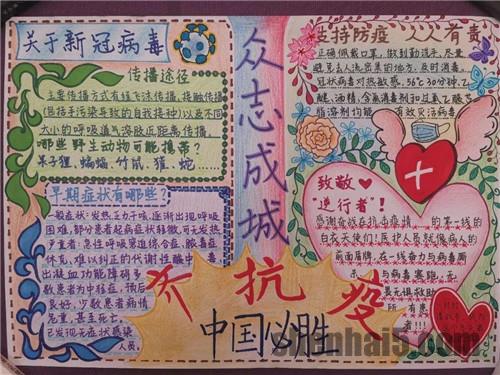 关于新冠病毒
传播途径
主要传播方式有经飞沫传播,接触传播
(包括手污染导致的自我接种)以及不同
大小的呼吸道气溶胶近距离传播,
哪些野生动物可能携带?
果子狸,蝙蝠,竹鼠,獾,蛇……
早期症状有哪些?
一般症状:发热、乏力干咳、逐渐出现呼吸
困难,部分患者起病症状轻微,可无发热
严重者:急性呼吸窘迫综合征、脓毒症
休克、难以纠正的代谢性酸中毒
出凝血功能障碍多
数患者为中轻症,预后
良好,少数患者病情
危重,甚至死亡。
已发现无症状感染
人员。
众志成城
齐抗疫
中国必胜
支持防疫 人人有责
正确佩戴口罩,做到勤洗手,尽量
避免去人流密集的地方,及时消毒,
冠状病毒对热敏感,56℃30分钟,乙
醚,酒精,含氯消毒剂和过氧乙酸等
脂溶剂均能有效灭活病毒
致敬
“逆行者”!
感谢奋战在抗击疫情的第一线的
白衣天使们!医护人员就像病人的
前面盾牌,在一线奋力与病毒斯
与病毒赛跑,无
所有患
者!!!
shenhai5.com